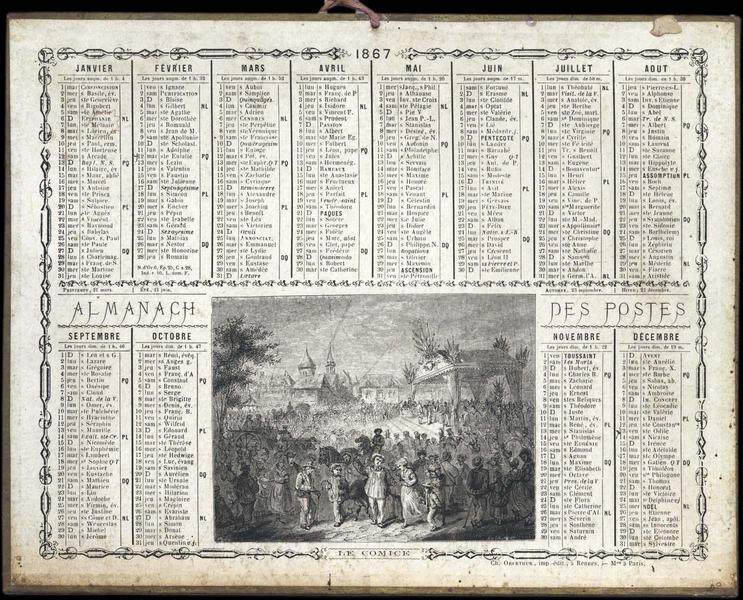 1867
JANVIER
Les jours augm. de 1 h. 4
1 mar CIRCONCISION
2 mer s Basile, év.
3 jeu ste Geneviève
4 ven s Rigobert
5 sam ste Amélie
6 D EPIPHANIE NL
7 lun ste Mélanie
8 mar s Lucien, év.
9 mer s Marcellin
10 jeu s Paul, erm.
11 ven ste Hortense
12 sam s Arcade
13 D Bapt. N. S. PQ
14 lun s Hilaire, év.
15 mar s Maur, abbé
16 mer s Marcel
17 jeu s Antoine
18 ven ste Prisca
19 sam s Sulpice
20 D s Sébastien PL
21 lun ste Agnès
22 mar s Vincent
23 mer s Raymond
24 jeu s Babylas
25 ven Conv. s. Paul
26 sam ste Paule
27 D s Julien DQ
28 lun s Charlemag.
29 mar s Franç. de S.
30 mer ste Martine
31 jeu ste Louise
FÉVRIER
1 ven s Ignace
2 sam PURIFICATION
3 D s Blaise
4 lun s Gilbert NL
5 mar ste Agathe
6 mer ste Dorothée
7 jeu s Romuald
8 ven s Jean de M.
9 sam ste Apollonie
10 D ste Scholast.
11 lun s Adolphe
12 mar ste Eulalie PQ
13 mer s Lezin
14 jeu s Valentin
15 ven s Faustin
16 sam ste Julienne
17 D Septuagésime
18 lun s Siméon PL
19 mar s Gabin
20 mer s Eucher
21 jeu s Pépin
22 ven ste Isabelle
23 sam s Gérard
24 D Sexagésime
25 lun s Mathias
26 mar s Nestor DQ
27 mer ste Honorine
28 jeu s Romain
MARS
1 ven s Aubin
2 sam s Simplice
3 D Quinquagés.
4 lun s Casimir
5 mar s Adrien
6 mer CENDRES NL
7 jeu ste Perpétue
8 ven ste Véronique
9 sam ste Françoise
10 D Quadragésime
13 mer ste Euphr. Q-T PQ
14 jeu ste Mathilde
15 ven s Zacharie
16 sam s Cyriaque
17 D Reminiscere
18 lun s Alexandre
19 mar s Joseph
20 mer s Joachim PL
21 jeu s Benoît
22 ven ste Léa
23 sam s Victorien
24 D Oculi
25 lun ANNONCIAT.
26 mar s Emmanuel
27 mer ste Lydie
28 jeu s Gontrand DQ
29 ven s Eustase
30 sam s Amédée
31 D Lætare
AVRIL
1 lun s Hugues
2 mar s Franç. de P
3 mer s Richard
4 jeu s Isidore NL
5 ven s Vincent F.
6 sam s Prudent
7 D Passion
8 lun s Albert
9 mar ste Marie Eg.
10 mer s Fulbert
11 jeu s Léon, pape PQ
12 ven s Jules
13 sam s Herménég.
14 D RAMEAUX
15 lun ste Anastasie
16 mar s Fructueux
17 mer s Anicet
18 jeu s Parfait PL
19 ven Vendr.-saint
20 sam s Théodore
21 D PAQUES
22 lun s Sotère
23 mar s Georges
24 mer s Fidèle
25 jeu s Marc, abst
26 ven s Clet, pape
27 sam s Frédéric DQ
28 D Quasimodo
29 lun s Robert
30 mar ste Catherine
MAI
1 mer s Jacq., s Phil
2 jeu s Athanase
3 ven Inv. ste Croix
4 sam ste Monique NL
5 D s Pie V
6 lun s Jean P.-L.
7 mar s Stanislas
8 mer s Désiré, év.
9 jeu s Grég. de N.
10 ven s Antonin PQ
12 D s Achille
13 lun s Servais
14 mar s Boniface
15 mer s Maxime
16 jeu s Honoré
17 ven s Pascal
18 sam s Venant PL
19 D s Célestin
20 lun s Bernardin
21 mar s Hospice
22 mer ste Julie
23 jeu s Didier
24 ven ste Angèle
25 sam s Urbain
26 D s Philippe N. DQ
27 lun s Hildevert
28 mar s Olivier
29 mer s Maximin
30 jeu ASCENSION
31 ven ste Pétronille
JUIN
1 sam s Fortuné
2 D s Etienne NL
3 lun ste Clotilde
4 mar s Optat
5 mer ste Valérie
6 jeu s Claude, év.
8 sam s Médard
9 D PENTECOTE PQ
10 lun s Landry
11 mar s Barnabé
12 mer s Guy Q-T
13 jeu s Ant. de P.
14 ven s Rufin
15 sam s Modeste
16 D TRINITÉ
17 lun s Avit PL
18 mar ste Marine
19 mer s Gervais
20 jeu FÊTE-DIEU
21 ven s Méen
22 sam s Alban
23 D s Félix
24 lun Nativ. s J.-B
25 mar s Prosper DQ
26 mer s David
27 jeu s Crescent
28 ven s Léon II
29 sam ss Pierre et P.
30 D ste Emilienne
JUILLET
1 lun s Thébault NL
2 mar Visit. de la V.
3 mer s Anatole, év.
4 jeu ste Berthe
5 ven ste Zoé, mart.
6 sam s Dominique
9 mar s Cyrille
10 mer ste Félicité
11 jeu Tr. s Benoît
12 ven s Gualbert
13 sam s Eugène
14 D s Bonaventure
15 lun s Henri
17 mer s Alexis
18 jeu s Camille
19 ven s Vinc. de P.
20 sam ste Marguerite
21 D s Victor
22 lun ste M.-Mad.
23 mar s Apollinaire
24 mer ste Christine DQ
25 jeu s Christophe
26 ven ste Anne
27 sam ste Nathalie
28 D s Samson
29 lun ste Marthe
30 mar s Abdon
31 mer s Germ. l'A NL
AOUT
1 jeu s Pierre-ès-L
2 ven s Alphonse
3 sam Inv. s Etienne
4 D s Dominique
5 lun s Abel
6 mar Tr. de N. S.
7 mer s Albert PQ
8 jeu s Justin
9 ven s Romain
10 sam s Laurent
11 D ste Suzanne
12 lun ste Claire
13 mar s Hippolyte
14 mer s Eusèbe v.j.
15 jeu ASSOMPTION PL
16 ven s Roch
17 sam s Septime
18 D ste Hélène
19 lun s Louis, év.
20 mar s Bernard
21 mer ste Jeanne
22 jeu s Symphorien DQ
23 ven s Sidonie
24 sam s Barthélemy
25 D s Louis, roi
26 lun s Zéphirin
27 mar s Césaire
28 mer s Augustin
29 jeu s Médéric NL
30 ven s Fiacre
31 sam s Aristide
PRINTEMPS, 21 mars.
ÉTÉ, 21 juin.
AUTOMNE, 23 septembre.
HIVER, 22 décembre.
ALMANACH
DES POSTES
SEPTEMBRE
1 D s Leu et s G
2 lun s Lazare
3 mar s Grégoire
4 mer ste Rosalie
5 jeu s Bertin PQ
6 ven s Onésipe
7 sam s Cloud
8 D Nat. de la V.
9 lun s Omer, év.
10 mar ste Pulchérie
11 mer s Hyacinthe
12 jeu s Séraphin
13 ven s Maurille
14 sam Exalt. ste Cr. PL
15 D s Nicomède
16 lun ste Euphémie
17 mar s Lambert
18 mer ste Sophie Q-T
19 jeu s Janvier
20 ven s Eustache
21 sam s Mathieu DQ
22 D s Maurice
23 lun s Lin
24 mar s Andoche
25 mer s Firmin, év.
26 jeu ste Justine
27 ven ss Côme et D. NL
28 sam s Wenceslas
29 D s Michel
30 lun s Jérôme
OCTOBRE
Les jours dim. de 1 h. 47
1 mar s Rémi, évêq.
2 mer ss Anges g.
3 jeu s Faust
4 ven s Franç. d'A
5 sam s Constant PQ
6 D s Bruno
7 lun s Serge
8 mar ste Brigitte
9 mer s Denis, év.
10 jeu s Franç. B.
11 ven s Quirin
12 sam s Wilfrid
13 D s Edouard PL
14 lun s Géraud
15 mar ste Thérèse
16 mer s Léopold
17 jeu ste Hedwige
18 ven s Luc, évang
19 sam s Savinien
20 D s Aurélien DQ
21 lun ste Ursule
22 mar s Modéran
23 mer s Hilarion
24 jeu s Magloire
25 ven s Crépin
26 sam s Evariste
27 D s Abraham NL
28 lun s Simon
29 mar s Donat
30 mer s Arsène
31 jeu s Quentin v.j.
NOVEMBRE
1 ven TOUSSAINT
2 sam Les Morts
3 D s Hubert, év.
4 lun s Charles B. PQ
5 mar s Zacharie
6 mer s Léonard
7 jeu s Ernest
8 ven stes Reliques
9 sam s Théodore
10 D s Juste
11 lun s Martin, év.
12 mar s René, év. PL
13 mer s Stanislas
14 jeu ste Philomène
15 ven ste Eugénie
16 sam s Edmond
17 D s Agnan
18 lun s Maxime DQ
19 mar ste Elisabeth
20 mer s Octave
21 jeu Prés. de la V
22 ven ste Cécile
23 sam s Clément
24 D ste Flora
25 lun ste Catherine
26 mar s Pierre d'Al NL
27 mer s Séverin
28 jeu s Sosthène
29 ven s Saturnin
30 sam s André
DÉCEMBRE
Les jours dim. de 19 m.
1 D AVENT
2 lun ste Aurélie
3 mar s Franç. X.
4 mer ste Barbe PQ
5 jeu s Sabas, ab.
6 ven s Nicolas
7 sam s Ambroise
8 D IM. CONCEPT
9 lun ste Léocadie
10 mar ste Valérie
11 mer s Daniel PL
12 jeu ste Constance
13 ven ste Odile
14 sam s Nicaise
15 D s Irénée
16 lun ste Adélaïde
17 mar ste Olympe
18 mer s Gatien Q-T DQ
19 jeu s Timoléon
20 ven ste Philogone
21 sam s Thomas
22 D s Honorat
23 lun ste Victoire
24 mar s Delphine v.j
25 mer NOEL NL
26 jeu s Etienne
27 ven s Jean, apôt.
28 sam ss Innocents
29 D ste Eléonore
30 lun ste Colombe
31 mar s Sylvestre
LE COMICE
Ch. OBERTHUR, imp.-édit., à Rennes. — Mon à Paris.